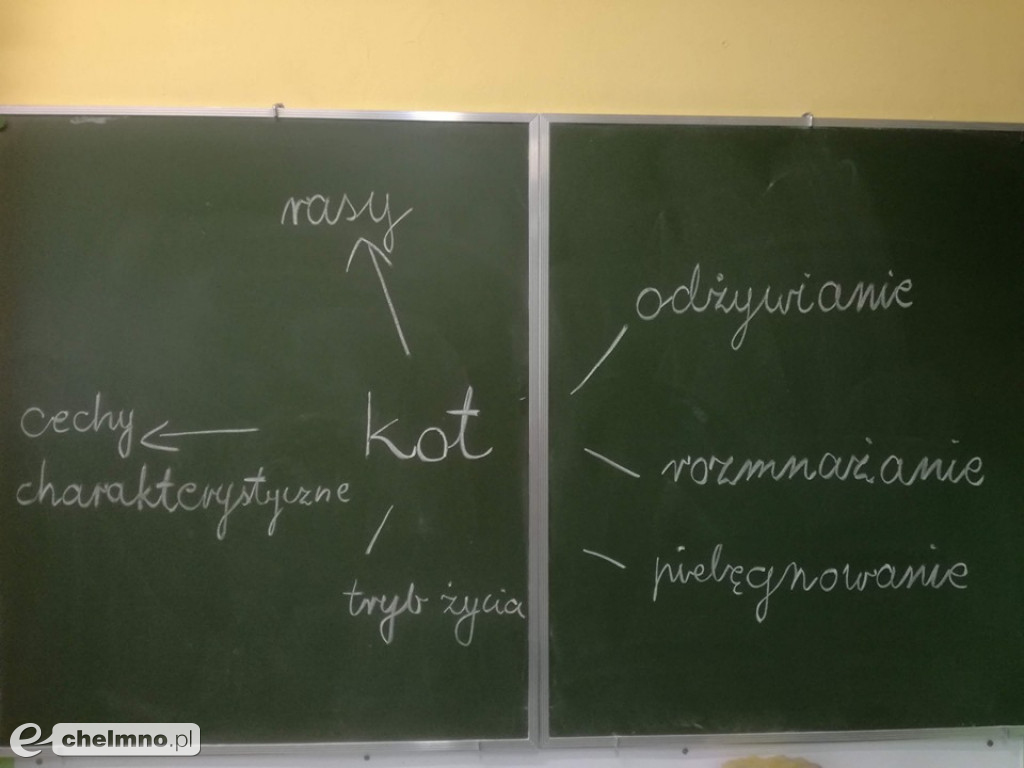 rasy
odżywianie
cechy
charakterystyczne
kot
rozmnażanie
pielęgnowanie
tryb życia
e chelmno.pl